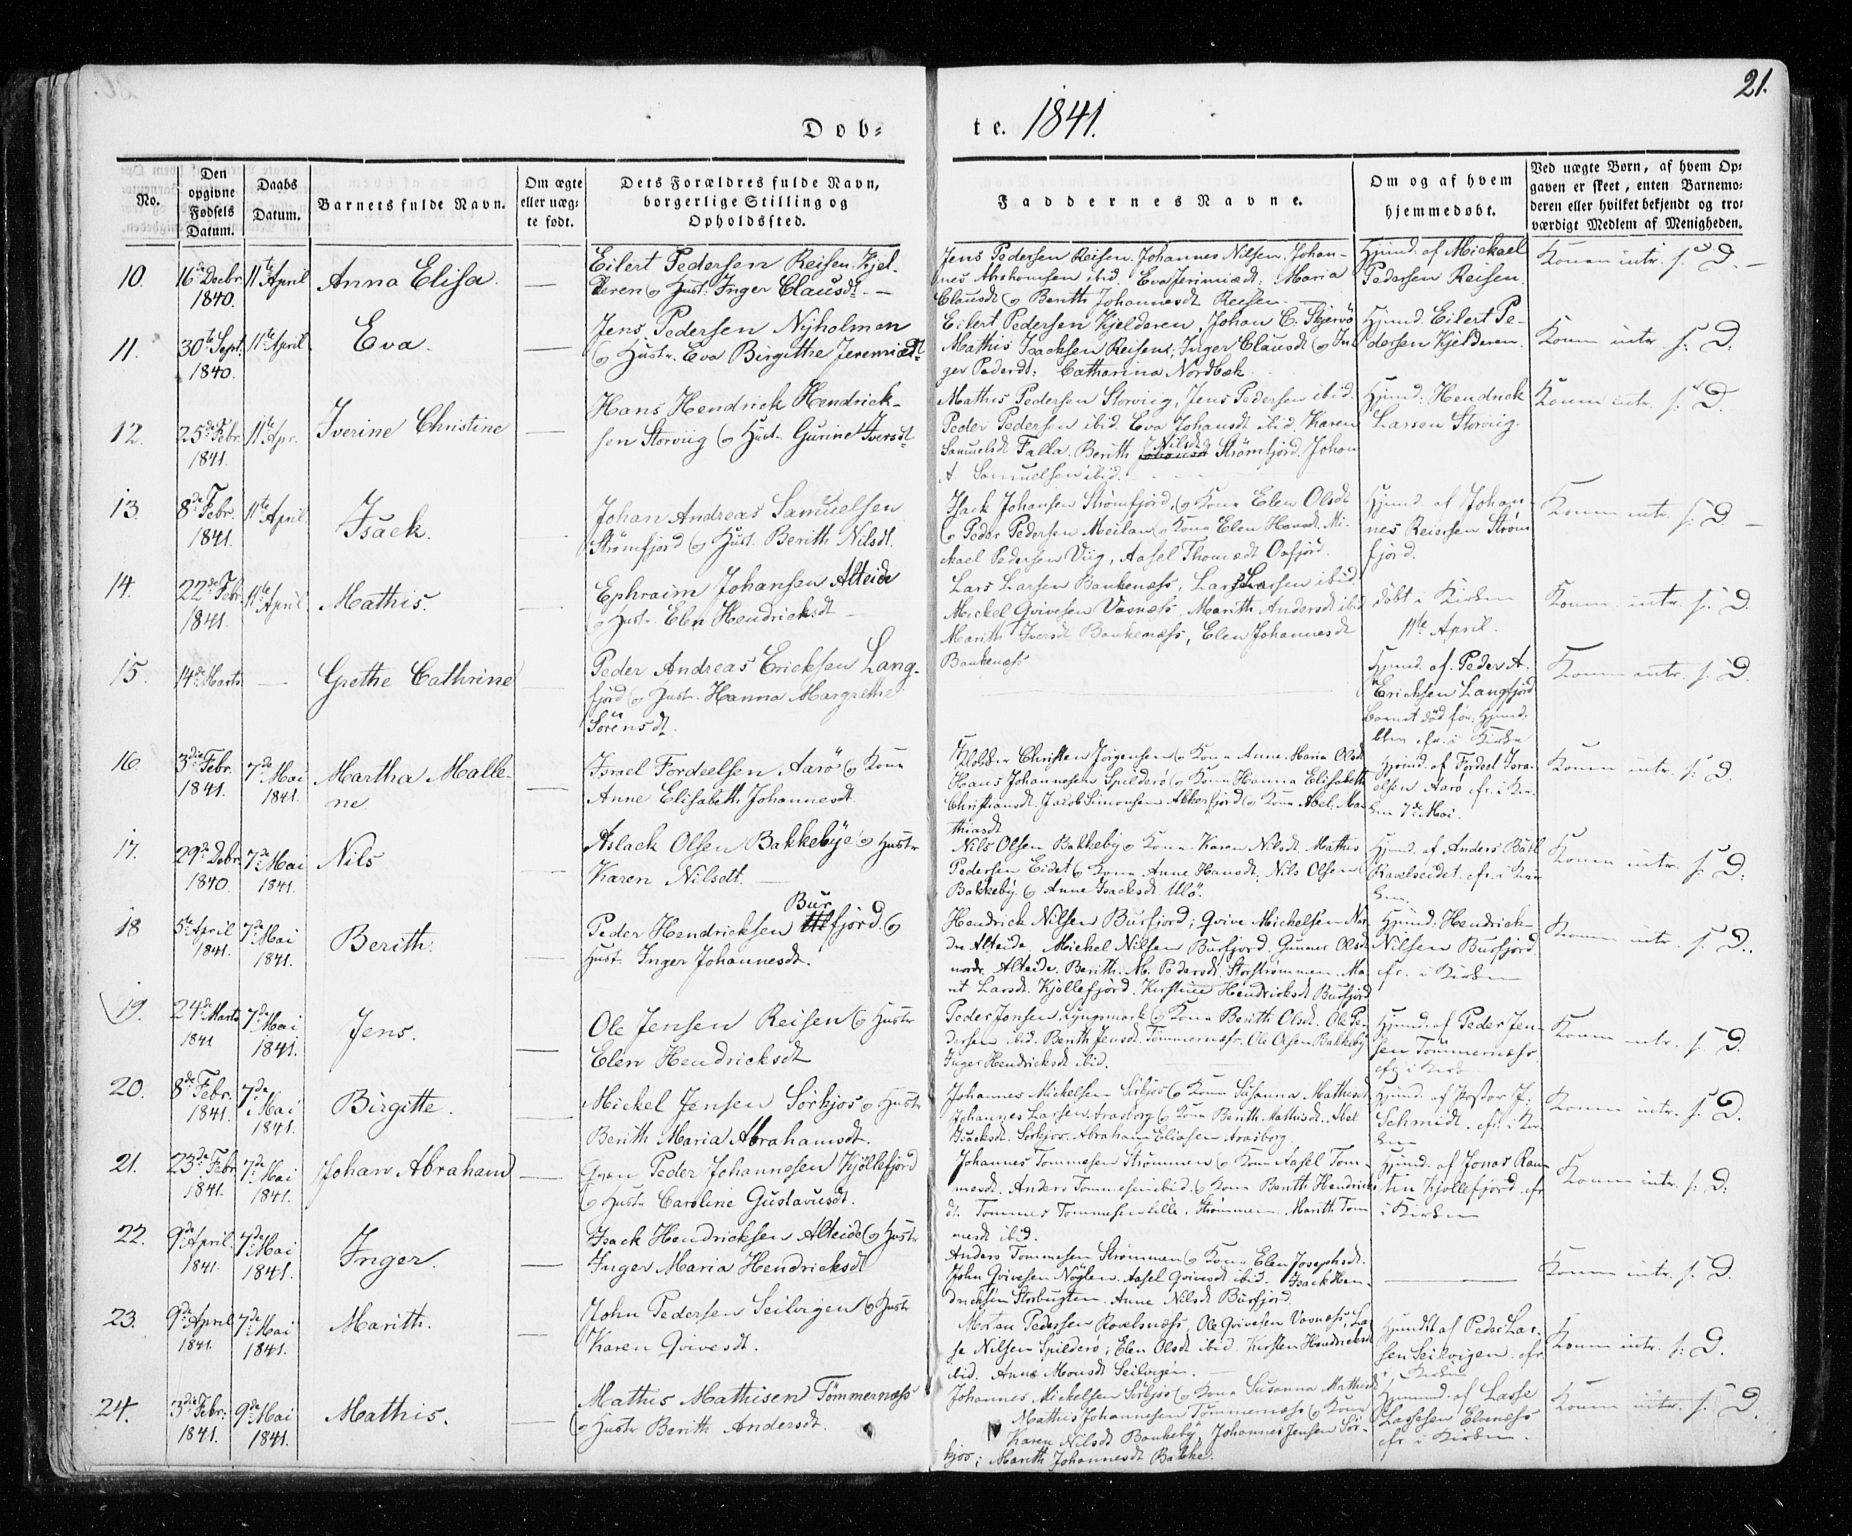 21.
Dob-
te. 1841.
No.
Den opgivne Fødsels Datum.
Daabs Datum.
Barnets fulde Navn.
Om ægte eller uægte født.
Dets Forældres fulde Navn, borgerlige Stilling og Opholdssted.
Faddernes Navne.
Om og af hvem hjemmedøbt.
Ved uægte Børn, af hvem Opgaven er skeet, enten Barnemoderen eller hvilket bekjendt og troværdigt Medlem af Menigheden.
10.
16de Decbr. 1840.
11te April
Anna Elisa.
Eilert Pedersen Reisen Kjel-
deren og Hust. Inger Clausdt. —
Jens Pedersen Reisen. Johannes Nilsen. Johan-
nes Abrahamsen ibid. Eva Jerimiædt. Maria
Clausdt og Berith Johannesdt Reisen.
Hjmd. af Mickael
Pedersen Reisen.
Konen intr. s. D.
11.
30te Sept. 1840.
11te April.
Eva.
Jens Pedersen Nyholmen
og Hustr. Eva Birgithe Jeremiædt
Eilert Pedersen Kjelderen, Johan C. Skjervö
Mathis Isacksen Reisen; Inger Clausdt og In-
ger Pedersdt: Catharina Nordbæk.
Hjmd. Eilert Pe-
dersen Kjelderen.
Konen intr. s: D:
12.
25de Febr. 1841.
11te Apr.
Iverine Christine
Hans Hendrick Hendrick-
sen Storviig og Hust. Gurine Iversdt
Mathis Pedersen Storviig, Jens Pedersen ibid.
Peder Pedersen ibid. Eva Johansdt ibid. Karen
Samuelsdt Falla. Berith Nilsdt Strömfjord. Johan
A. Samuelsen ibid.
Hjmd: Hendrick
Larsen Storviig.
Konen intr. s: D.
13.
8de Febr. 1841.
11te April
Isack.
Johan Andreas Samuelsen
Strömfjord og Hust. Berith Nilsdt.
Isack Johansen Strömfjord, og Kone Elen Olsdt
og Peder Pedersen Meilan og Kone Elen Hansdt. Mi-
kael Pedersen Viig, Aasel Thomædt Oxfjord.
Hjmd. af Johan-
nes Reiersen Ström
fjord.
Konen intr. s: D. —
14.
22de Febr. 1841.
11te April
Mathis.
Ephraim Johansen Alteide
og Hustr. Elen Hendricksdt —
Lars Larsen Bankenæss, Lars Larsen ibid.
Mickel Qvivesen Vasnæss, Marith Andersdt ibid
Marith Iversdt Bankenæss, Elen Johannesdt
Bankenæss
døbt i Kirken
11te April.
Konen intr. s. D.
15.
14de Marts
—
Grethe Cathrine
Peder Andreas Ericksen Lang-
fjord og Hustr. Hanna Margrethe
Sörensdt.
Hjmd. af Peder A.
Ericksen Langfjord
barnet död før
Konen intr. s: D.
16.
3die Febr. 1841.
7de Mai 1841.
Martha Malle-
ne
Israel Fordeelsen Aarö og Kone
Anne Elisabeth Johannesdt.
Christen Jörgensen og Kone Anne Maria Olsdt
Hans Johannesen Spilderö og Kone Hanna Elisabeth
Christiansdt, Jacob Simonsen Akkerfjord og Kone Abel Ma-
thiasdt
Hjmd. af Fordeel Isra-
elsen Aarö efr. i Kir-
ken 7de Mai.
Konen intr. s: D.
17.
29de Decbr. 1840.
7de Mai 1841.
Nils
Aslack Olsen Bakkebye og Hustr
Karen Nilsdt. —
Nils Olsen Bakkeby og Kone Karen Nilsdt. Mathis
Pedersen Eidet og Kone Anne Hansdt; Nils Olsen
Bakkeby. og Anne Isacksdt Ulö.
Hjmd. af Anders
Ravelseidet. efr. i Kir-
ken.
Konen intr. s: D:
18
5te April 1841.
7de Mai 1841.
Berith.
Bur
Peder Hendricksen fjord. og
Hust. Inger Johannesdt.
Hendrick Nilsen Burfjord; Qvive Mickelsen Nor-
dre Alteide. Mickel Nilsen Burfjord. Gunner Olsdt
nordr. Alteide. Berith. M. Pedersdt. Storströmmen. Ma-
rit Larsdt. Kjöllefjord. Kirstine Hendricksdt Burfjord
Hjmd. Hendrick
Nilsen Burfjord
efr. i Kirken
Konen intr. s: D.
19.
24de Marts 1841
7de Mai 1841.
Jens.
Ole Jensen Reisen og Hustr
Elen Hendricksdt
Peder Jensen, Lyngsmark og Kone Berith Olsdt. Ole Pe-
dersen ibid. Berith Jensdt. Tömmernæss. Ole Olsen Bakkeby
Inger Hendricksdt ibid.
Hjmd. af Peder Jen-
sen Tömmernæss.
efr i Kirk
Konen intr. s: D.
20.
8de Febr. 1841.
7de Mai 1841.
Birgitte.
Mickel Jensen Sörkjos og Hustr
Berith Maria Abrahamsdt.
Johannes Mickelsen Sörkjos og Kone Susanna Mathisdt
Johannes Larsen Arasborg og Kone Berith Mathisdt. Abel
Isacksdt. Sörkjos. Abraham Eliasen Arasborg.
Hjmd. af Pastor J.
Schmidt. efr. i Kir-
ken
Konen intr. s: D.
21.
23de Febr. 1841.
7de Mai 1841.
Johan Abraham
Peder Johannesen Kjöllefjord
og Hustr. Caroline Gustavusdt.
Johannes Tommesen Strömmen og Kone Aasel Tom-
mesdt. Anders Tommesen ibid. og Kone Berith Hendricks-
dt. Tommes Tommesen lille. Strömmen. Marith Tom
mesdt ibid.
Hjmd. af Jonas Ras-
tin Kjöllefjord. efr
i Kirken
Konen intr. s: D:
22.
9de April. 1841.
7de Mai 1841.
Inger.
Isack Hendricksen Alteide og Hustr
Inger Maria Hendricksdt
Anders Tommesen Strömmen og Kone Elen Josephsdt.
John Qvivesen Nöglen. Aasel Qvivesdt ibid. Isack Hen-
dricksen Storbugten. Anne Nilsdt Burfjord.
Konen intr. s: D.
23.
9de April 1841.
7de Mai 1841.
Marith.
John Pedersen Seilvigen og Hustr
Karen Qvivesdt.
Morten Pedersen Ravelsnæss, Ole Qvivesen Vasnæss, La-
se Nilsen Spilderö; Elen Olsdt ibid. Kirsten Hendricksdt
ibid. Anne Monsdt Seilvigen.
Hjmdt af Peder Lar-
sen Seilvigen. efr.
i Kirken
Konen intr. s: D.
24.
3die Febr. 1841.
9de Mai 1841.
Mathis.
Mathis Mathisen Tömmernæss
og Hustr Berith Andersdt.
Johannes Mickelsen Sörkjos og Kone Susanna Mathisdt
Mathis Johannesen Tömmernæss og Kone
Karen Nilsdt Bankeby, Johannes Jensen Sör-
kjos; Marith Johannesdt Bakke.
Hjmmd. af Lasse
Lassesen Elvenæss
efr. i Kirken.
Konen intr. s: D.